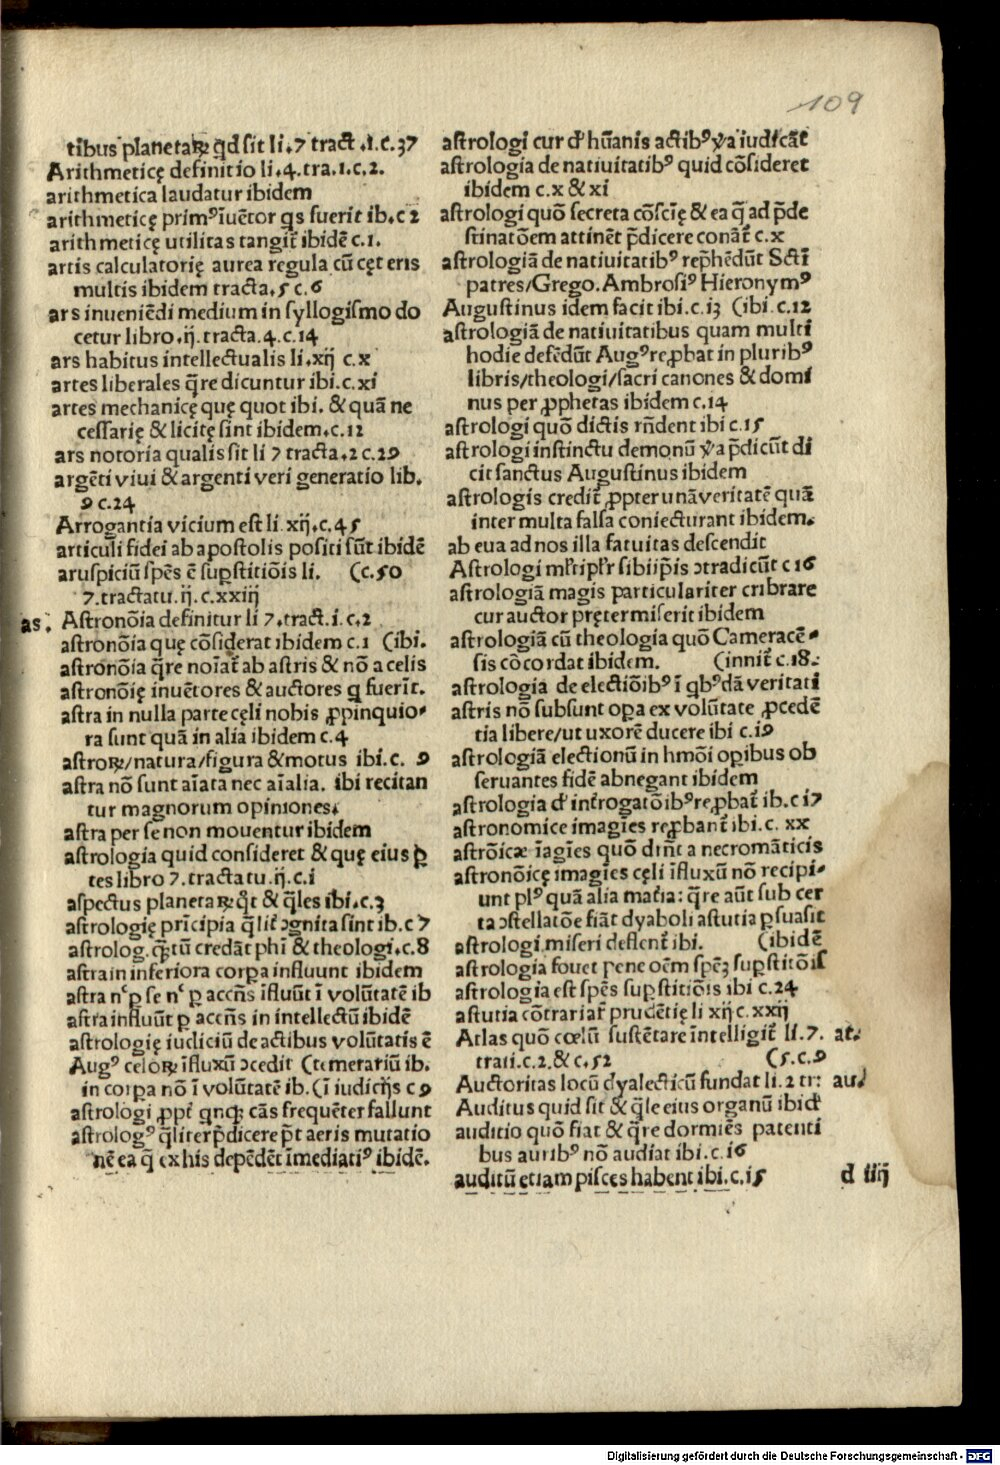 109
tibus planetaꝝ qd sit li.7 tract .1.c.37
Arithmeticę definitio li.4.tra.1.c.2.
arithmetica laudatur ibidem
arithmeticę primꝰ īuētor qs fuerit ib.c 2
arithmeticę utilitas tangit᷑ ibidē c.1.
artis calculatorię aurea regula cū cęteris
multis ibidem tracta.5 c.6
ars inueniēdi medium in syllogismo do
cetur libro.ij.tracta.4.c.14
ars habitus intellectualis li.xij c.x
artes liberales q̄re dicuntur ibi.c.xi
artes mechanicę quę quot ibi. & quā ne
cessarię & licitę sint ibidem.c.12
ars notoria qualis sit li 7 tracta.2 c.29
argēti viui & argenti veri generatio lib.
9 c.24
Arrogantia vicium est li.xij.c.45
articuli fidei ab apostolis positi sūt ibidē
aruspiciū spēs ē suꝑstitiōis li. (c.50
7.tractatu.ij.c.xxiij
as. Astronōia definitur li 7.tract.i.c.2
astronōia quę cōsiderat ibidem c.1 (ibi.
astronōia q̄re noīat᷑ ab astris & nō a celis
astronōię inuētores & auctores q fuerīt.
astra in nulla parte cęli nobis ꝓpinquio-
ra sunt quā in alia ibidem c.4
astroꝝ/natura/figura & motus ibi.c. 9
astra nō sunt aīata nec aīalia. ibi recitan
tur magnorum opiniones.
astra per se non mouentur ibidem
astrologia quid consideret & quę eius ꝑ
tes libro 7.tractatu.ij.c.i
aspectus planetaꝝ q̄t & q̄les ibi.c.3
astrologię prīcipia q̄lit᷑ ɔgnita sint ib.c 7
astrolog. q̄tū credāt phī & theologi.c.8
astra in inferiora corpa influunt ibidem
astra nᶜ ꝑ se nᶜ ꝑ accn̄s īfluūt ī volūtatē ib
astra influūt ꝑ accn̄s in intellectū ibidē
astrologię iudiciū de actibus volūtatis ē
Augꝰ celoꝝ īfluxū ɔcedit (temerariū ib.
in corpa nō ī volūtatē ib.(ī iudicijs c 9
astrologi ꝓpt᷑ qnqꝫ cās frequēter fallunt
astrologꝰ q̄liter p̄dicere p̄t aeris mutatio
nē ea q̄ ex his depēdēt īmediatiꝰ ibidē.
astrologi cur d' hūanis actibꝰ v᷑a iudicāt
astrologia de natiuitatibꝰ quid cōsideret
ibidem c.x & xi
astrologi quō secreta cōscīę & ea q̄ ad p̄de
stinatōem attinēt p̄dicere conāt᷑ c.x
astrologiā de natiuitatibꝰ rep̄hēdūt Sctī
patres/Grego. Ambrosiꝰ Hieronymꝰ
Augustinus idem facit ibi.c.i3 (ibi.c.12
astrologiā de natiuitatibus quam multi
hodie defēdūt Augꝰ reꝓbat in pluribꝰ
libris/theologi/sacri canones & domi
nus per ꝓphetas ibidem c.14
astrologi quō dictis rn̄dent ibi c.15
astrologi instinctu demonū v᷑a p̄dicūt di
cit sanctus Augustinus ibidem
astrologis credit᷑ ꝓpter unā veritatē quā
inter multa falsa coniecturant ibidem.
ab eua ad nos illa fatuitas descendit
Astrologi mr̄ipl'r sibiip̄is ɔtradicūt c 16
astrologiā magis particulariter cribrare
cur auctor prętermiserit ibidem
astrologiā cū theologia quō Cameracē-
sis cōcordat ibidem. (innit᷑ c.18.
astrologia de electiōibꝰ ī qbꝰdā veritati
astris nō subsunt oꝑa ex volūtate ꝓcedē
tia libere/ut uxorē ducere ibi c.i9
astrologiā electionū in hmōi oꝑibus ob
seruantes fidē abnegant ibidem
astrologia d' int᷑rogatōibꝰ reꝓbat᷑ ib.c i7
astronomice imagīes reꝓbant᷑ ibi.c. xx
astrōicæ īagīes quō din̄t a necromāticis
astronōicę imagīes cęli īfluxū nō recipi-
unt plꝰ quā alia mat᷑ia: q̄re aūt sub cer
ta ɔstellatōe fiāt dyaboli astutia ꝑsuasit
astrologi miseri deflent᷑ ibi. (ibidē
astrologia fouet pene oēm spēꝫ suꝑstitōis
astrologia est spēs suꝑstitiōis ibi c.24
astutia cōtrariat᷑ prudētię li xij c.xxij
Atlas quō cœlū sustētare īntelligit᷑ li.7. at.
trati.c.2.& c.52 (5.c.9
Auctoritas locū dyalecticū fundat li.2 tr: au.
Auditus quid sit & q̄le eius organū ibid'
auditio quō fiat & q̄re dormiēs patenti
bus auribꝰ nō audiat ibi.c.i6
auditū etiam pisces habent ibi.c.i5
d iiij
Digitalisierung gefördert durch die Deutsche Forschungsgemeinschaft - DFG